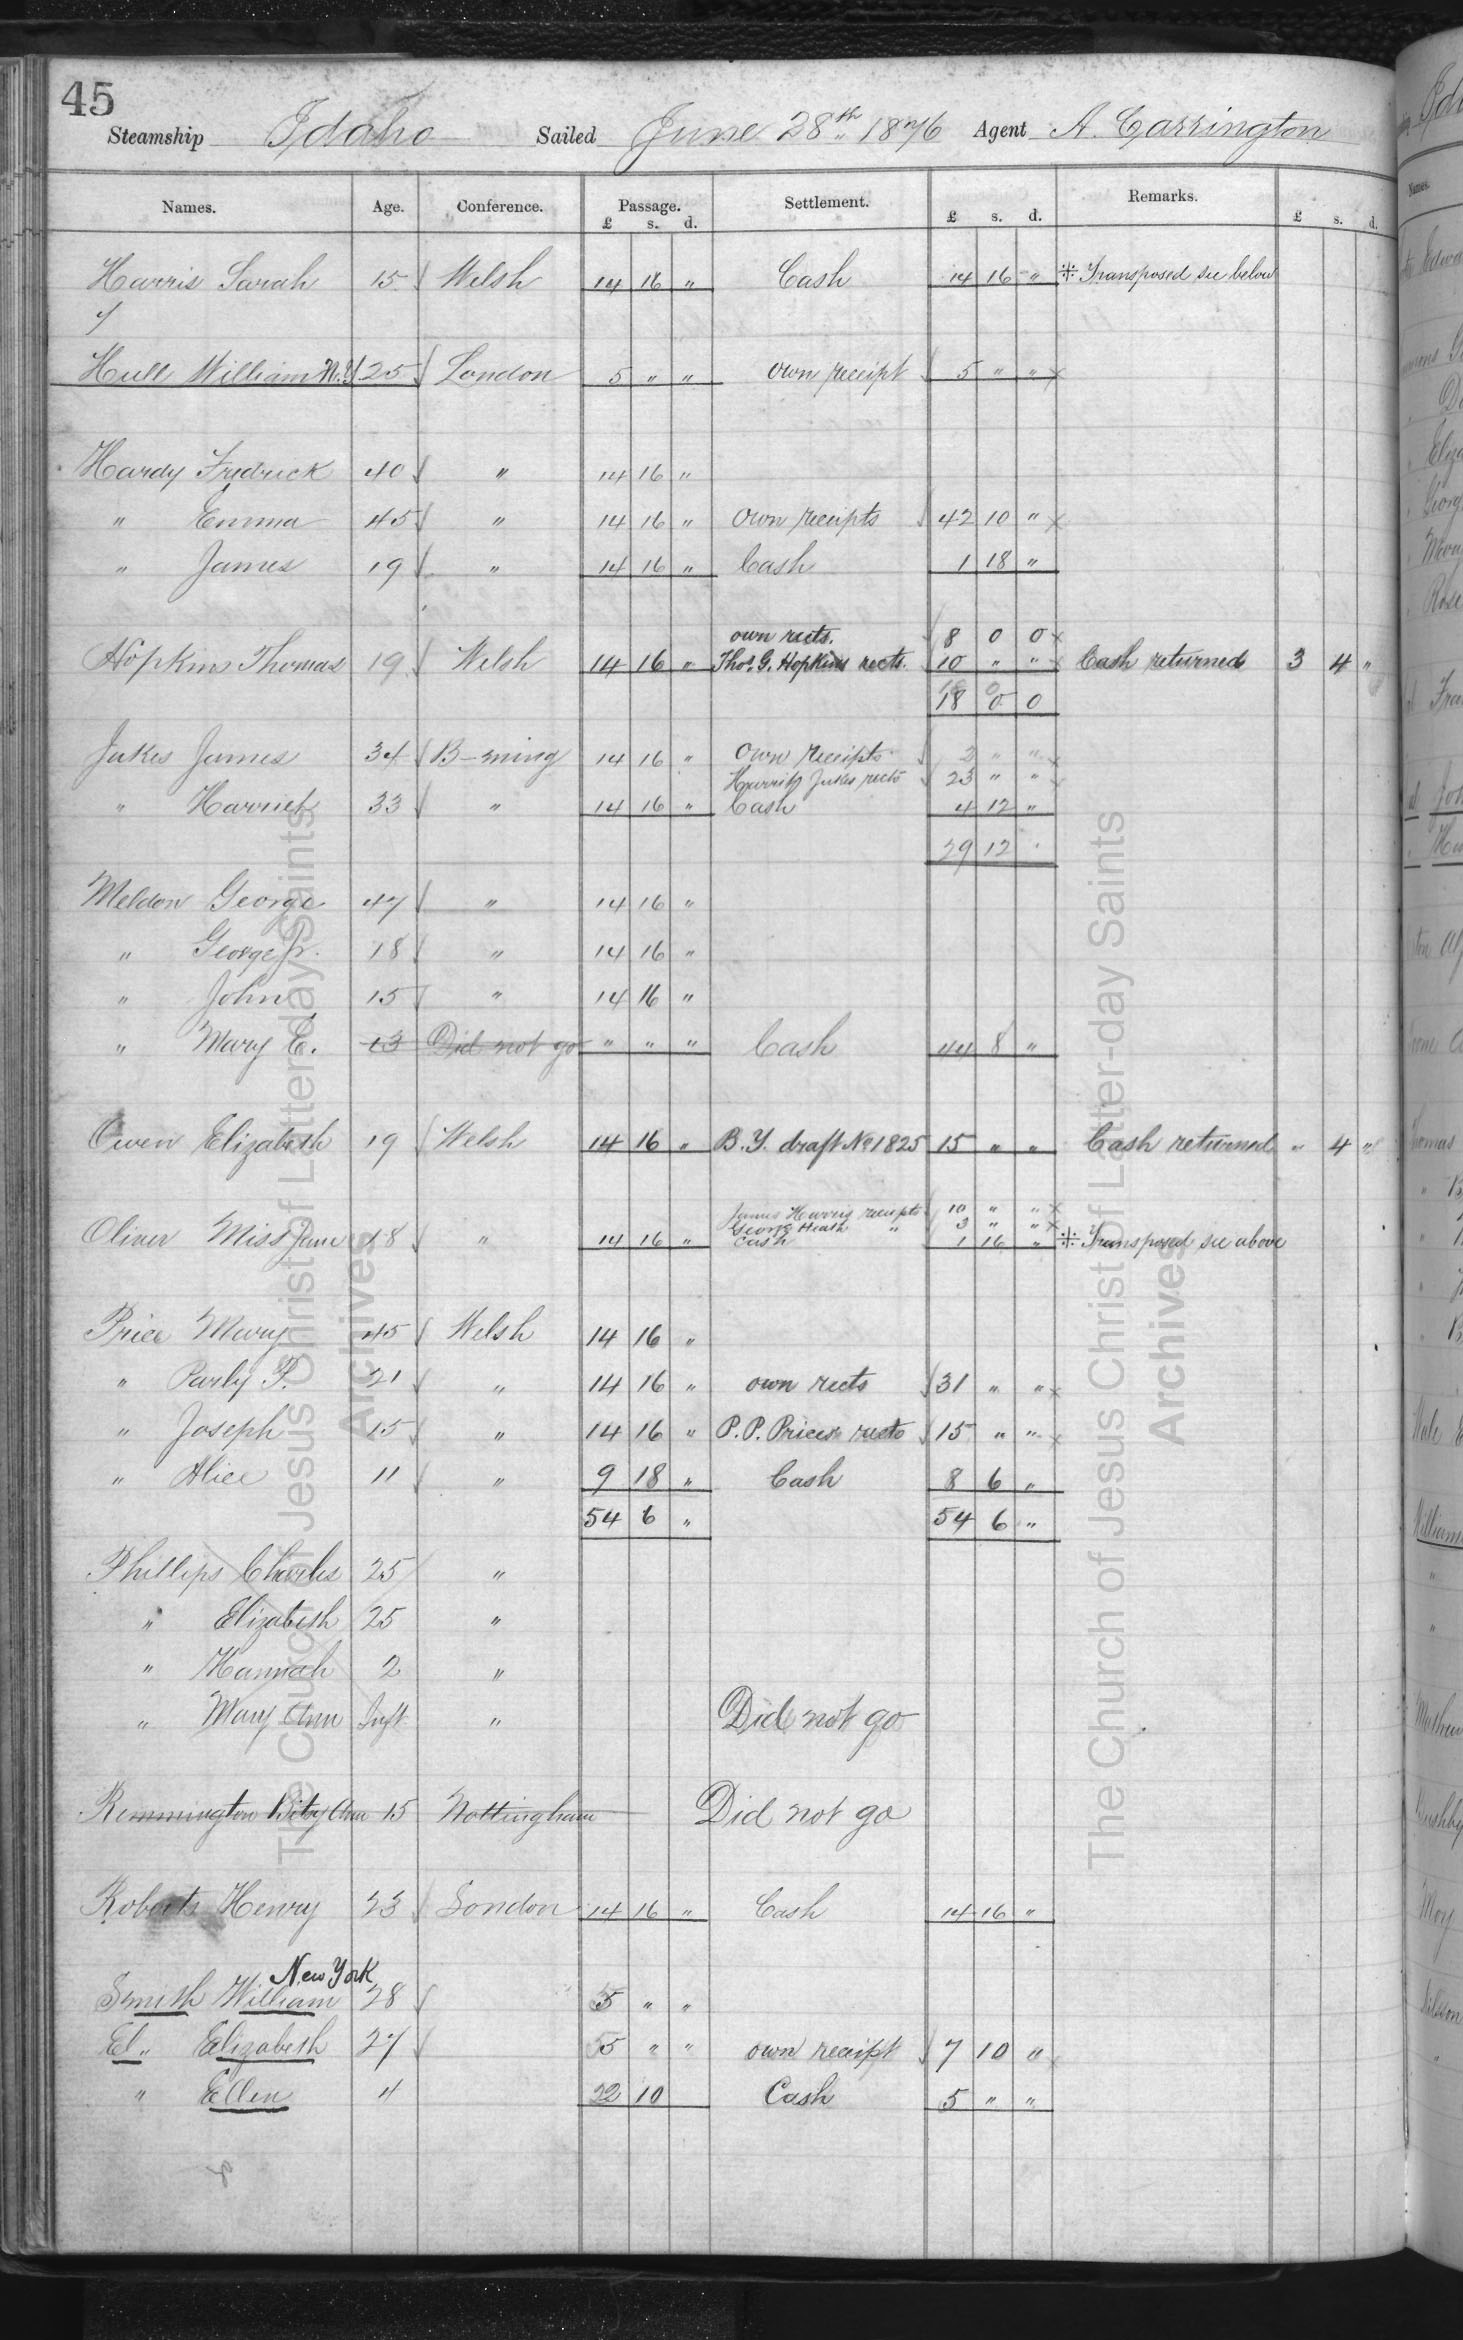 45
Steamship Idaho Sailed June 28th 1876 Agent A. Carrington
Names. Age. Conference. Passage. £ s. d. Settlement. £ s. d. Remarks. £ s. d.
Harris Sarah 15 Welsh 14 16 " Cash 14 16 " * Transposed see below
Hull William N.Y 25 London 5 " " own receipt 5 " " x
Hardy Fredrick 40 " 14 16 "
" Emma 45 " 14 16 " Own receipts 42 10 " x
" James 19 " 14 16 " Cash 1 18 "
own rects. 8 0 0 x
Hopkins Thomas 19 Welsh 14 16 " Thos. G. Hopkins rects. 10 " " x Cash returned 3 4 "
18 0 0
Jukes James 34 B-ming 14 16 " Own receipts 2 " " x
Harriet Jukes rects 23 " " x
" Harriet 33 " 14 16 " Cash 4 12 "
29 12 "
Meldon George 47 " 14 16 "
" George Jr. 18 " 14 16 "
" John 15 " 14 16 "
" Mary E. 13 Did not go " " " Cash 44 8 "
Owen Elizabeth 19 Welsh 14 16 " B.Y. draft No 1825 15 " " Cash returned " 4 "
James Harris receipts 10 " " x
George Heath " 3 " " x
Oliver Miss Jane 18 " 14 16 " Cash 1 16 " * Transposed see above
Price Mary 45 Welsh 14 16 "
" Parly P. 21 " 14 16 " own rects 31 " " x
" Joseph 15 " 14 16 " P.P. Prices rects 15 " " x
" Alice 11 " 9 18 " Cash 8 6 "
54 6 " 54 6 "
Phillips Charles 25 "
" Elizabeth 25 "
" Hannah 2 "
" Mary Ann Inft "  Did not go
Remmington Bitsy Ann 15 Nottingham Did not go
Roberts Henry 23 London 14 16 " Cash 14 16 "
New York
Smith William 28 5 " "
El " Elizabeth 27 5 " " own receipt 7 10 " x
" Ellen 4 22 10 Cash 5 " "
The Church of Jesus Christ of Latter-day Saints
Archives
The Church of Jesus Christ of Latter-day Saints
Archives